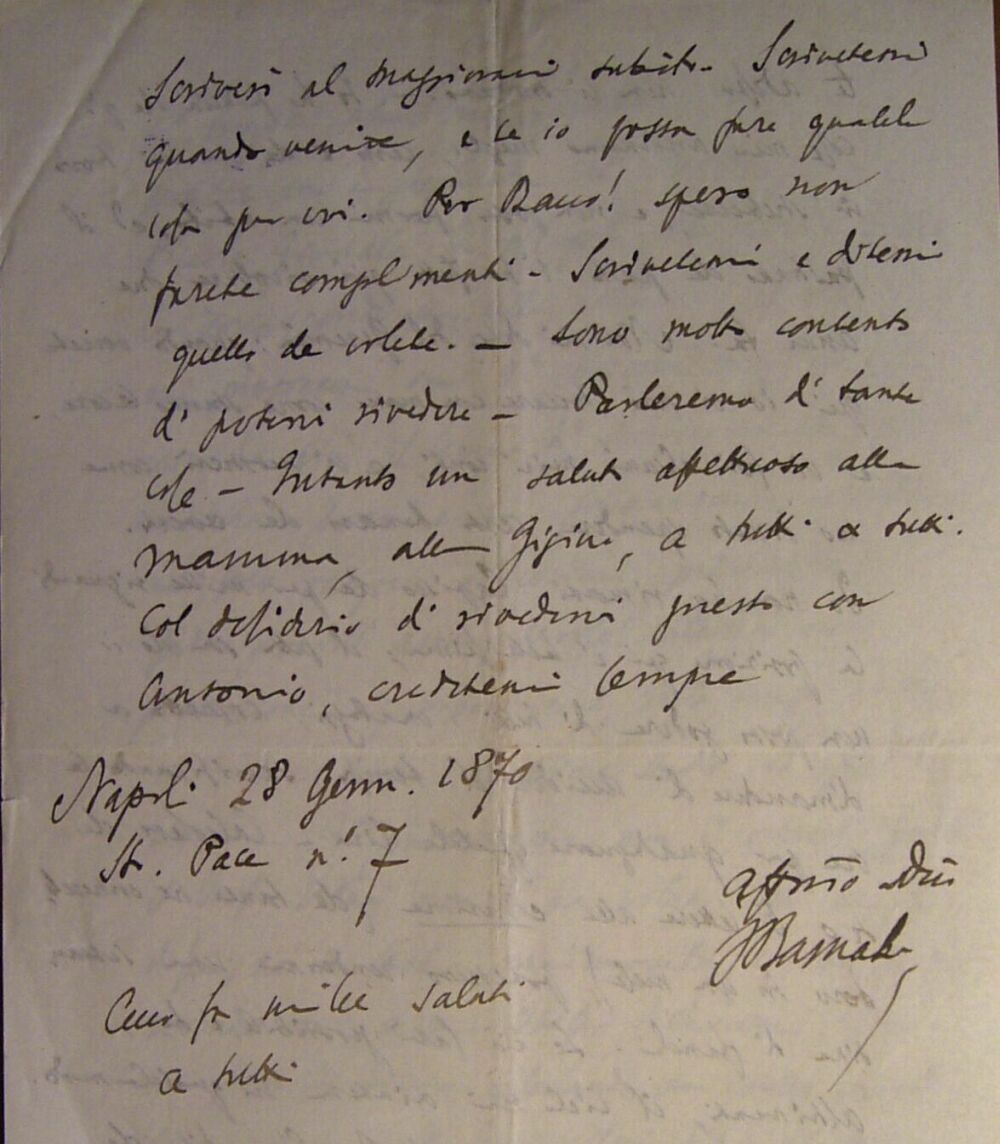 Scriverò al Maggiorani subito. Scrivetemi
quando venite, e se io possa fare qualche
cosa per voi. Per Bacco! spero non
farete complimenti - Scrivetemi e ditemi
quello che volete. — Sono molto contento
di potervi rivedere — Parleremo di tante
cose — Intanto un saluto affettuoso alla
mamma, alla Gigina, a tutti a tutti.
Col desiderio di rivedervi presto con
Antonio, credetemi sempre
Napoli 28 Genn. 1870
Str. Pace n.° 7
Affmo
Barnabei
Cecco fa mille saluti
a tutti